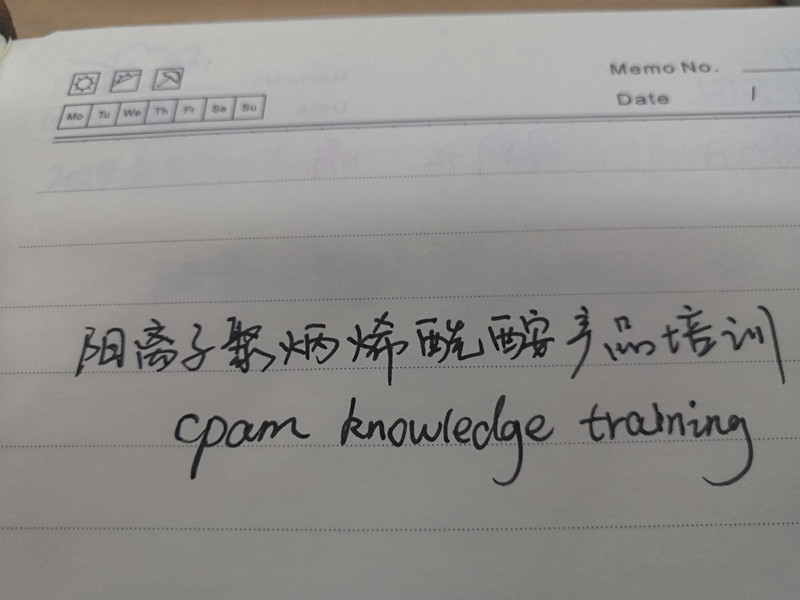 Memo No.
Mo Tu We Th Fr Sa Su
Date /
阳离子聚炳烯酰酸产品培训
cpam knowledge training